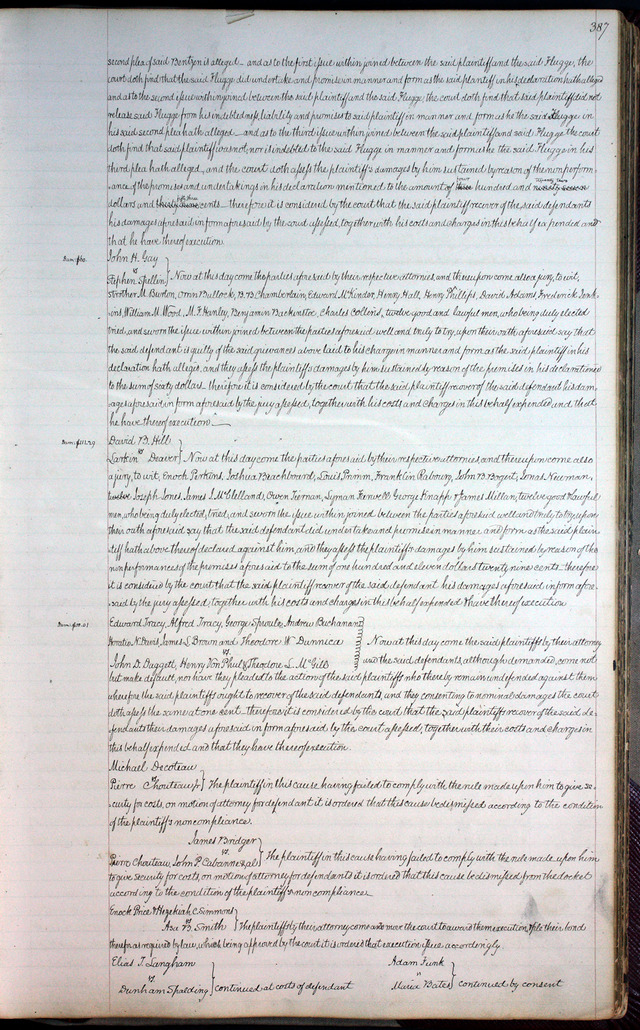 387
second plea of said Bentzen is alleged - and as to the first issue within joined between the said plaintiff and the said Flugge, the
court doth find that the said Flugge did undertake and promise in manner and form as the said plaintiff in his declaration hath alleged
and as to the second issue within joined between the said plaintiff and the said Flugge, the court doth find that said plaintiff did not
release said Flugge from his indebtness liability and promises to said plaintiff in manner and form as he the said Flugge in
his said second plea hath alleged - and as to the third issue within joined between the said plaintiff and said Flugge the court
doth find that said plaintiff was not, nor is indebted to the said Flugge in manner and form as he the said Flugge in his
third plea hath alleged, and the court doth assess the plaintiff's damages by him sustained by reason of the nonperform-
ance of the promises and undertakings in his declaration mentioned to the amount of three hundred and seventy seven
dollars and cents - therefore it is considered by the court that the said plaintiff recover of the said defendants
his damages aforesaid in form aforesaid by the court assessed, together with his costs and charges in this behalf expended and
that he have thereof execution
Dam. $60. John H. Gay
vs
Stephen Spellin } Now at this day come the parties aforesaid by their respective attornies, and thereupon come also a jury, to wit,
Strother M. Burton, Orrin Bullock, B. B. Chamberlain, Edward McKinder, Henry Hall, Henry Phillips, David Adams, Frederick Jenk-
ins, William M. Wood, M. F. Hanley, Benjamin Backnstoe, Charles Collins, twelve good and lawful men, who being duly elected
tried, and sworn the issue within joined between the parties aforesaid well and truly to try, upon their oath aforesaid say that
the said defendant is guilty of the said grievances above laid to his charge in manner and form as the said plaintiff in his
declaration hath alleged, and they assess the plaintiffs damages by him sustained by reason of the premises in his declaration
to the sum of sixty dollars. Therefore it is considered by the court that the said plaintiff recover of the said defendant his dam-
ages aforesaid in form aforesaid by the jury assessed, together with his costs and charges in this behalf expended and that
he have thereof execution.
Dam. $111.29 David B. Hill
vs
Larkin Deaver } Now at this day come the parties aforesaid by their respective attornies, and thereupon come also
a jury, to wit, Enoch Perkins, Joshua Beachboard, Louis Primm, Franklin Rabourg, John B. Bogert, Jonas Newman,
Joseph Jones, James S. McClelland, Owen Teernan, Lyman Farwell, George Knapp & James Millan, twelve good & lawful
men, who being duly elected, tried, and sworn the issue within joined between the parties aforesaid well and truly to try, upon
their oath aforesaid say that the said defendant did undertake and promise in manner and form as the said plain-
tiff hath above thereof declared against him, and they assess the plaintiffs damages by him sustained by reason of the
nonperformances of the premises aforesaid to the sum of one hundred and eleven dollars twenty nine cents. therefore
it is considered by the court that the said plaintiff recover of the said defendant his damages aforesaid in form afore-
said by the jury assessed, together with his costs and charges in this behalf expended & have thereof execution
Dam. $0.01 Edward Tracy, Alfred Tracy, George Sproule, Andrew Buchanan
Horatio N. Davis, James L. Brown and Theodore W. Dunnica } Now at this day come the said plaintiffs by their attorney
vs
John D. Daggett, Henry Von Phul & Theodore L. McGill } and the said defendants, although demanded, come not
but make default, nor have they pleaded to the action of the said plaintiffs who thereby remain undefended against them
wherefore the said plaintiffs ought to recover of the said defendants, and they consenting to nominal damages the court
doth assess the same at one cent. therefore it is considered by the court that the said plaintiffs recover of the said de-
fendants their damages aforesaid in form aforesaid by the court assessed, together with their costs and charges in
this behalf expended and that they have thereof execution.
Michael Decoteau
vs
Pierre Chouteau Jr } The plaintiff in this cause having failed to comply with the rule made upon him to give se-
curity for costs, on motion of attorney for defendant it is ordered that this cause be dismissed according to the condition
of the plaintiffs noncompliance.
James Bridger
vs
Pierre Chouteau, John P. Cabanne & al } The plaintiff in this cause having failed to comply with the rule made upon him
to give security for costs, on motion of attorney for defendants it is ordered that this cause be dismissed from the docket
according to the condition of the plaintiffs noncompliance
Enoch Price & Hezekiah C. Simmons
vs
Asa B. Smith } The plaintiffs by their attorney come and move the court to award them execution & file their bond
therefor as required by law, which being approved by the court it is ordered that execution issue accordingly
Elias T. Langham
vs
Dunham Spalding } continued at costs of defendant
Adam Funk
"
Maria Bates } continued by consent